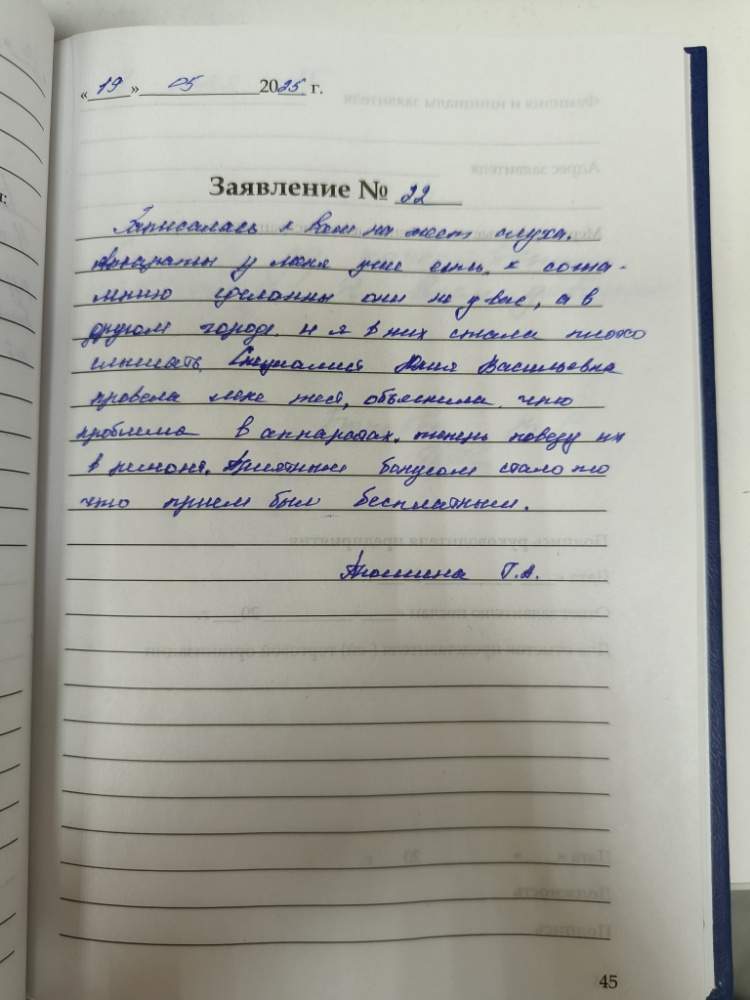 « 19 » 05 2025 г.
Заявление № 22
Записалась к вам на тест слуха.
Аппараты у меня уже есть. к сожа-
лению сделанны они не у вас, а в
другом городе. и я в них стала плохо
слышать. Специалист Юлия Васильевна
провела мне тест, объяснила. что
проблема в аппаратах. теперь повезу их
в ремонт. Приятным бонусом стало то
что прием был бесплатным.
Т.А.
45